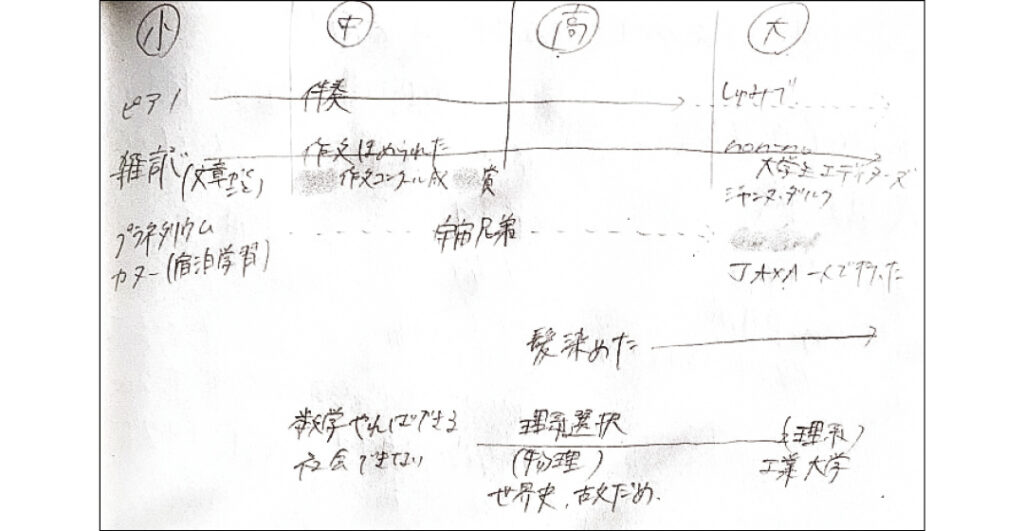 小 中 高 大
ピアノ 伴奏 しゅみで
雑誌 (文章かくこと) 作文ほめられた non-no
作文コンクール 賞 大学生エディターズ
ジャンヌ・ダルク
プラネタリウム 宇宙兄弟
カヌー(宿泊学習) JAXA 一人で行った
髪染めた
数学やればできる 理系選択 (理系)
社会できない (物理) 工業大学
世界史、古文だめ.